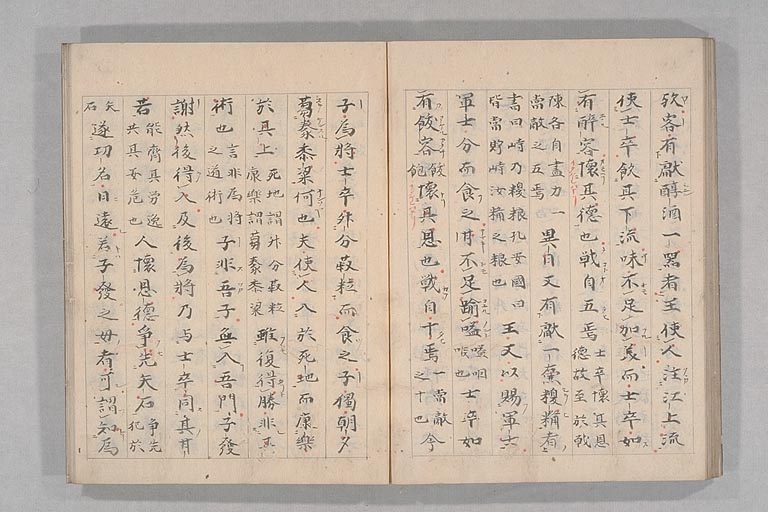 欤客有獻醇酒一器者王使人注江上流
使士卒飲其下流味不足加羨而士卒如
有醉容懷其德也戰自五焉士卒懷其恩德故至於戰
陳各自盡力一當敵之五焉異日又有獻一囊糗糒有
書曰峙乃糗粮孔安國曰皆當貯峙汝糒之粮也王又以賜軍士
軍士分而食之甘不足踰嗌嗌咽喉也士卒如
有飲容飲飽懷其恩也戰自十焉一當敵之十也今
子為將士卒升分菽粒而食之子獨朝夕
芻豢黍粱何也夫使人入於死地而康樂
於其上死地謂升分菽粒康樂謂芻豢黍粱雖復得勝非其
術也言非為將之道術也子非吾子無入吾門子發
謝然後得入及後為將乃与士卒同其甘
若能齊其勞逸共其安危也人懷恩德爭先矢石爭先犯於
矢石遂功名日遠若子發之母者可謂知為